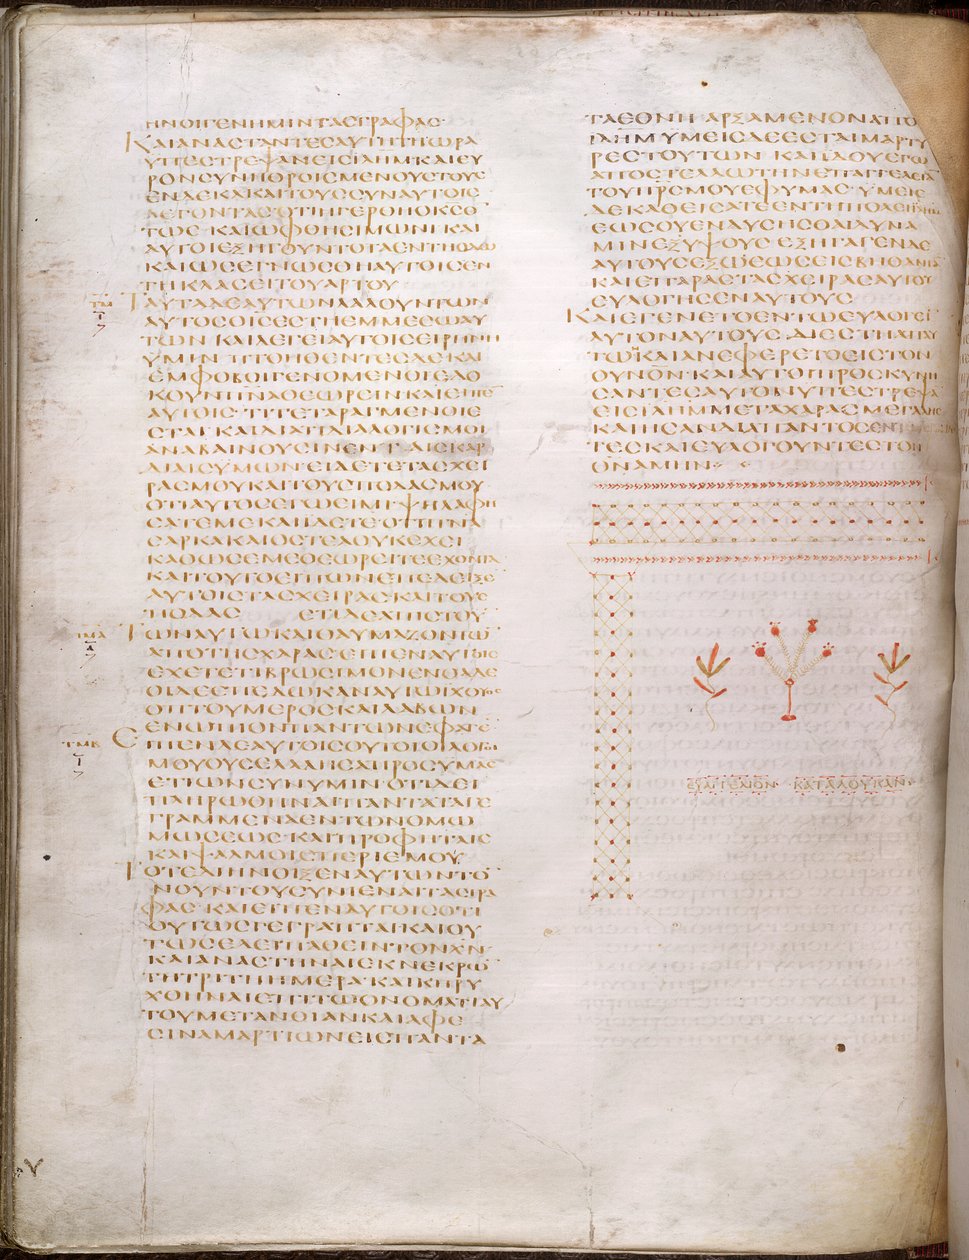 ΗΝΟΙΓΕΝΗΜΙΝΤΑϹΓΡΑΦΑϹ·
ΚΑΙΑΝΑϹΤΑΝΤΕϹΑΥΤΗΤΗΩΡΑ
ΥΠΕϹΤΡΕΨΑΝΕΙϹΙΛΗΜ·ΚΑΙΕΥ
ΡΟΝϹΥΝΗΘΡΟΙϹΜΕΝΟΥϹΤΟΥϹ
ΕΝΔΕΚΑΚΑΙΤΟΥϹϹΥΝΑΥΤΟΙϹ
ΛΕΓΟΝΤΑϹΟΤΙΗΓΕΡΘΗΟΚϹΟ
ΤΩϹ· ΚΑΙΩΦΘΗϹΙΜΩΝΙ·ΚΑΙ
ΑΥΤΟΙΕΞΗΓΟΥΝΤΟΤΑΕΝΤΗΟΔΩ
ΚΑΙΩϹΕΓΝΩϹΘΗΑΥΤΟΙϹΕΝ
ΤΗΚΛΑϹΕΙΤΟΥΑΡΤΟΥ
ΤΜ
Ι
ΤΑΥΤΑΔΕΑΥΤΩΝΛΑΛΟΥΝΤΩΝ
ΑΥΤΟϹΟΙϹΕϹΤΗΕΜΜΕϹΩΑΥ
ΤΩΝ ΚΑΙΛΕΓΕΙΑΥΤΟΙϹΕΙΡΗΝΗ
ΥΜΙΝ ΠΤΟΗΘΕΝΤΕϹΔΕΚΑΙ
ΕΜΦΟΒΟΙΓΕΝΟΜΕΝΟΙΕΔΟ
ΚΟΥΝΠΝΑΘΕΩΡΕΙΝ·ΚΑΙΕΙΠΕ̅
ΑΥΤΟΙϹ·ΤΙΤΕΤΑΡΑΓΜΕΝΟΙΕ
ϹΤΑΙΚΑΙΔΙΑΤΙΔΙΑΛΟΓΙϹΜΟΙ
ΑΝΑΒΑΙΝΟΥϹΙΝΕΝΤΑΙϹΚΑΡ
ΔΙΑΙϹΥΜΩΝ·ΕΙΔΕΤΕΤΑϹΧΕΙ
ΡΑϹΜΟΥΚΑΙΤΟΥϹΠΟΔΑϹΜΟΥ
ΟΤΙΑΥΤΟϹΕΓΩΕΙΜΙ·ΨΗΛΑΦΗ
ϹΑΤΕΜΕΚΑΙΙΔΕΤΕΟΤΙΠΝΑ
ϹΑΡΚΑΚΑΙΟϹΤΕΑΟΥΚΕΧΕΙ
ΚΑΘΩϹΕΜΕΘΕΩΡΕΙΤΕΕΧΟΝΤΑ
ΚΑΙΤΟΥΤΟΕΙΠΩΝΕΠΕΔΕΙΞΕ
ΑΥΤΟΙϹΤΑϹΧΕΙΡΑϹΚΑΙΤΟΥϹ
ΠΟΔΑϹ ΕΤΙΔΕΑΠΙϹΤΟΥ
ΤΜΑ
ΤΩΝΑΥΤΩΚΑΙΘΑΥΜΑΖΟΝΤΩ̅
ΑΠΟΤΗϹΧΑΡΑϹΕΙΠΕΝΑΥΤΟΙϹ
ΕΧΕΤΕΤΙΒΡΩϹΙΜΟΝΕΝΘΑΔΕ
ΟΙΔΕΕΠΕΔΩΚΑΝΑΥΤΩΙΧΘΥΟϹ
ΟΠΤΟΥΜΕΡΟϹΚΑΙΛΑΒΩΝ
ΕΝΩΠΙΟΝΠΑΝΤΩΝΕΦΑΓΕ̅
ΤΜΒ
Ι
ΕΙΠΕΝΔΕΑΥΤΟΙϹΟΥΤΟΙΟΙΛΟΓΟΙ
ΜΟΥΟΥϹΕΛΑΛΗϹΑΠΡΟϹΥΜΑϹ
ΕΤΙΩΝϹΥΝΥΜΙΝ·ΟΤΙΔΕΙ
ΠΛΗΡΩΘΗΝΑΙΠΑΝΤΑΤΑΓΕ
ΓΡΑΜΜΕΝΑΕΝΤΩΝΟΜΩ
ΜΩϹΕΩϹ·ΚΑΙΠΡΟΦΗΤΑΙϹ
ΚΑΙΨΑΛΜΟΙϹΠΕΡΙΕΜΟΥ·
ΤΟΤΕΔΙΗΝΟΙΞΕΝΑΥΤΩΝΤΟ
ΝΟΥΝΤΟΥϹΥΝΙΕΝΑΙΤΑϹΓΡΑ
ΦΑϹ·ΚΑΙΕΙΠΕΝΑΥΤΟΙϹΟΤΙ
ΟΥΤΩϹΓΕΓΡΑΠΤΑΙΚΑΙΟΥ
ΤΩϹΕΔΕΙΠΑΘΕΙΝΤΟΝΧΝ·
ΚΑΙΑΝΑϹΤΗΝΑΙΕΚΝΕΚΡΩ̅
ΤΗΤΡΙΤΗΗΜΕΡΑ·ΚΑΙΚΗΡΥ
ΧΘΗΝΑΙΕΠΙΤΩΟΝΟΜΑΤΙΑΥ
ΤΟΥΜΕΤΑΝΟΙΑΝΚΑΙΑΦΕ
ϹΙΝΑΜΑΡΤΙΩΝΕΙϹΠΑΝΤΑ
ΤΑΕΘΝΗ ΑΡΞΑΜΕΝΟΝΑΠΟ
ΙΛΗΜΥΜΕΙϹΔΕΕϹΤΑΙΜΑΡΤΥ
ΡΕϹΤΟΥΤΩΝ ΚΑΙΙΔΟΥΕΓΩ
ΑΠΟϹΤΕΛΛΩΤΗΝΕΠΑΓΓΕΛΕΙΑ
ΤΟΥΠΡϹΜΟΥΕΦΥΜΑϹ·ΥΜΕΙϹ
ΔΕΚΑΘΕΙϹΑΤΕΕΝΤΗΠΟΛΕΙΙΛΗΜ
ΕΩϹΟΥΕΝΔΥϹΗϹΘΑΙΔΥΝΑ
ΜΙΝΕΞΥΨΟΥϹ ΕΞΗΓΑΓΕΝΔΕ
ΑΥΤΟΥϹΕΞΩΕΩϹΕΙϹΒΗΘΑΝΙΑ
ΚΑΙΕΠΑΡΑϹΤΑϹΧΕΙΡΑϹΑΥΤΟΥ
ΕΥΛΟΓΗϹΕΝΑΥΤΟΥϹ
ΚΑΙΕΓΕΝΕΤΟΕΝΤΩΕΥΛΟΓΕΙ
ΑΥΤΟΝΑΥΤΟΥϹ·ΔΙΕϹΤΗΑΠΑΥ
ΤΩ̅ΚΑΙΑΝΕΦΕΡΕΤΟΕΙϹΤΟΝ
ΟΥΝΟΝ·ΚΑΙΑΥΤΟΙΠΡΟϹΚΥΝΗ
ϹΑΝΤΕϹΑΥΤΟΝΥΠΕϹΤΡΕΨΑ
ΕΙϹΙΛΗΜΜΕΤΑΧΑΡΑϹΜΕΓΑΛΗϹ
ΚΑΙΗϹΑΝΔΙΑΠΑΝΤΟϹΕΝΤΩΙΕΡΩ
ΤΕϹΚΑΙΕΥΛΟΓΟΥΝΤΕϹΤΟΝ
ΘΝΑΜΗΝ
ΕΥΑΓΓΕΛΙΟΝ· ΚΑΤΑΛΟΥΚΑΝ·